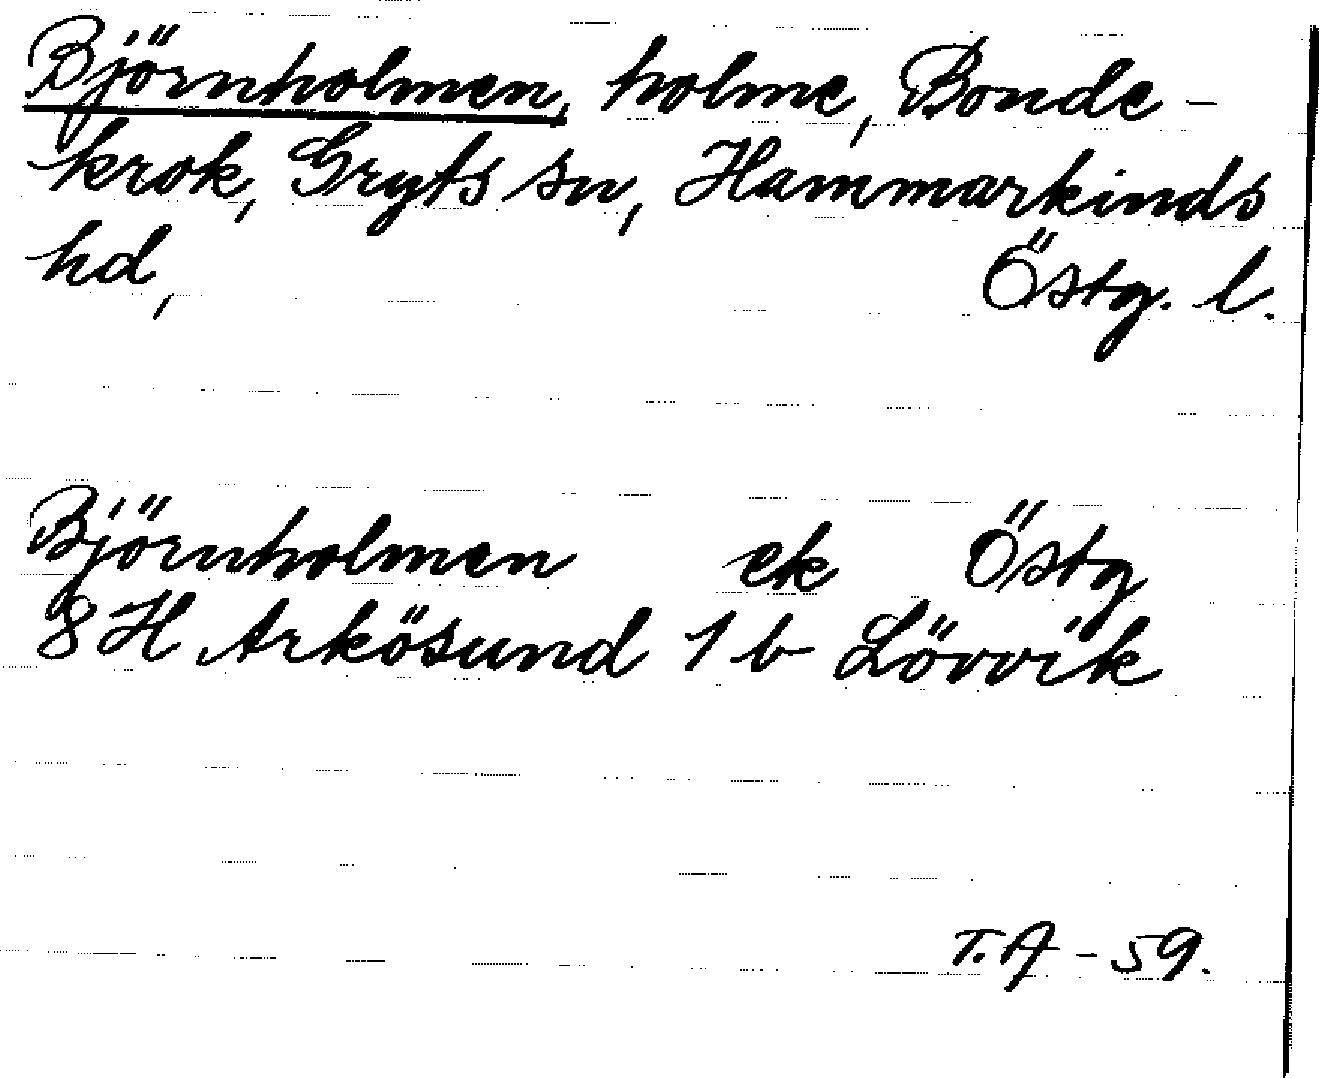 Björnholmen, holme, Bonde-
krok, Gryts sn, Hammarkinds
hd, Östg. l.
Björnholmen ek Östg
8 H Arkösund 1 b Lövvik
T.A - 59.